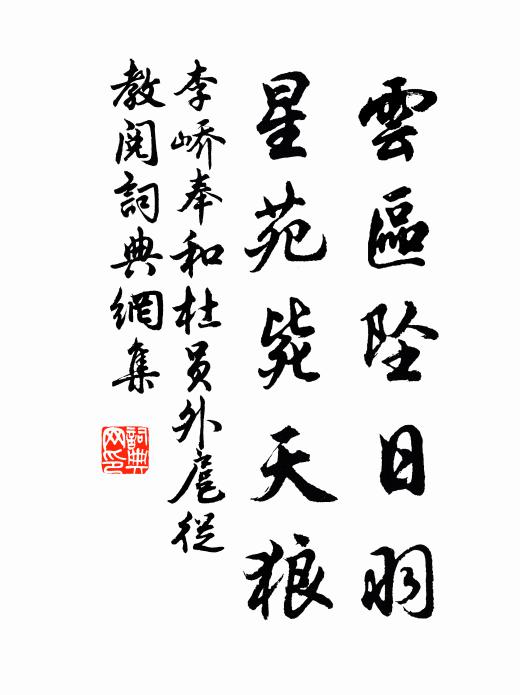 雲區墜日羽
星苑斃天狼
李嶠奉和杜員外扈從
教閱詞典網集
詞典網印